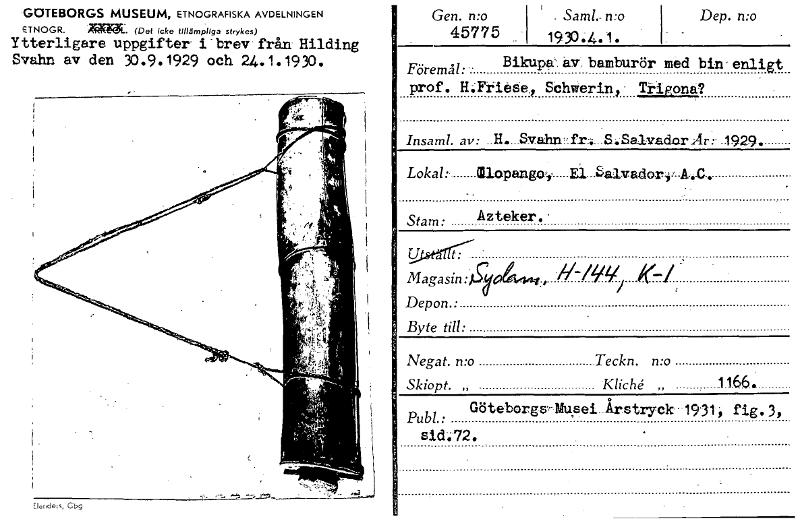 GÖTEBORGS MUSEUM, ETNOGRAFISKA AVDELNINGEN
ETNOGR. ARKEOL. (Det icke tillämpliga strykes)
Ytterligare uppgifter i brev från Hilding
Svahn av den 30.9.1929 och 24.1.1930.
Elanders, Gbg
Gen. n:o Saml. n:o Dep. n:o
45775 1930.4.1.
Föremål: Bikupa av bamburör med bin enligt
prof. H.Friese, Schwerin, Trigona?
Insaml. av: H. Svahn fr. S.Salvador År: 1929.
Lokal: Ilopango, El Salvador, A.C.
Stam: Azteker.
Utställt:
Magasin: Sydam. H-144, K-1
Depon.:
Byte till:
Negat. n:o Teckn. n:o
Skiopt. „ Kliché „ 1166.
Publ.: Göteborgs Musei Årstryck 1931, fig.3,
sid.72.